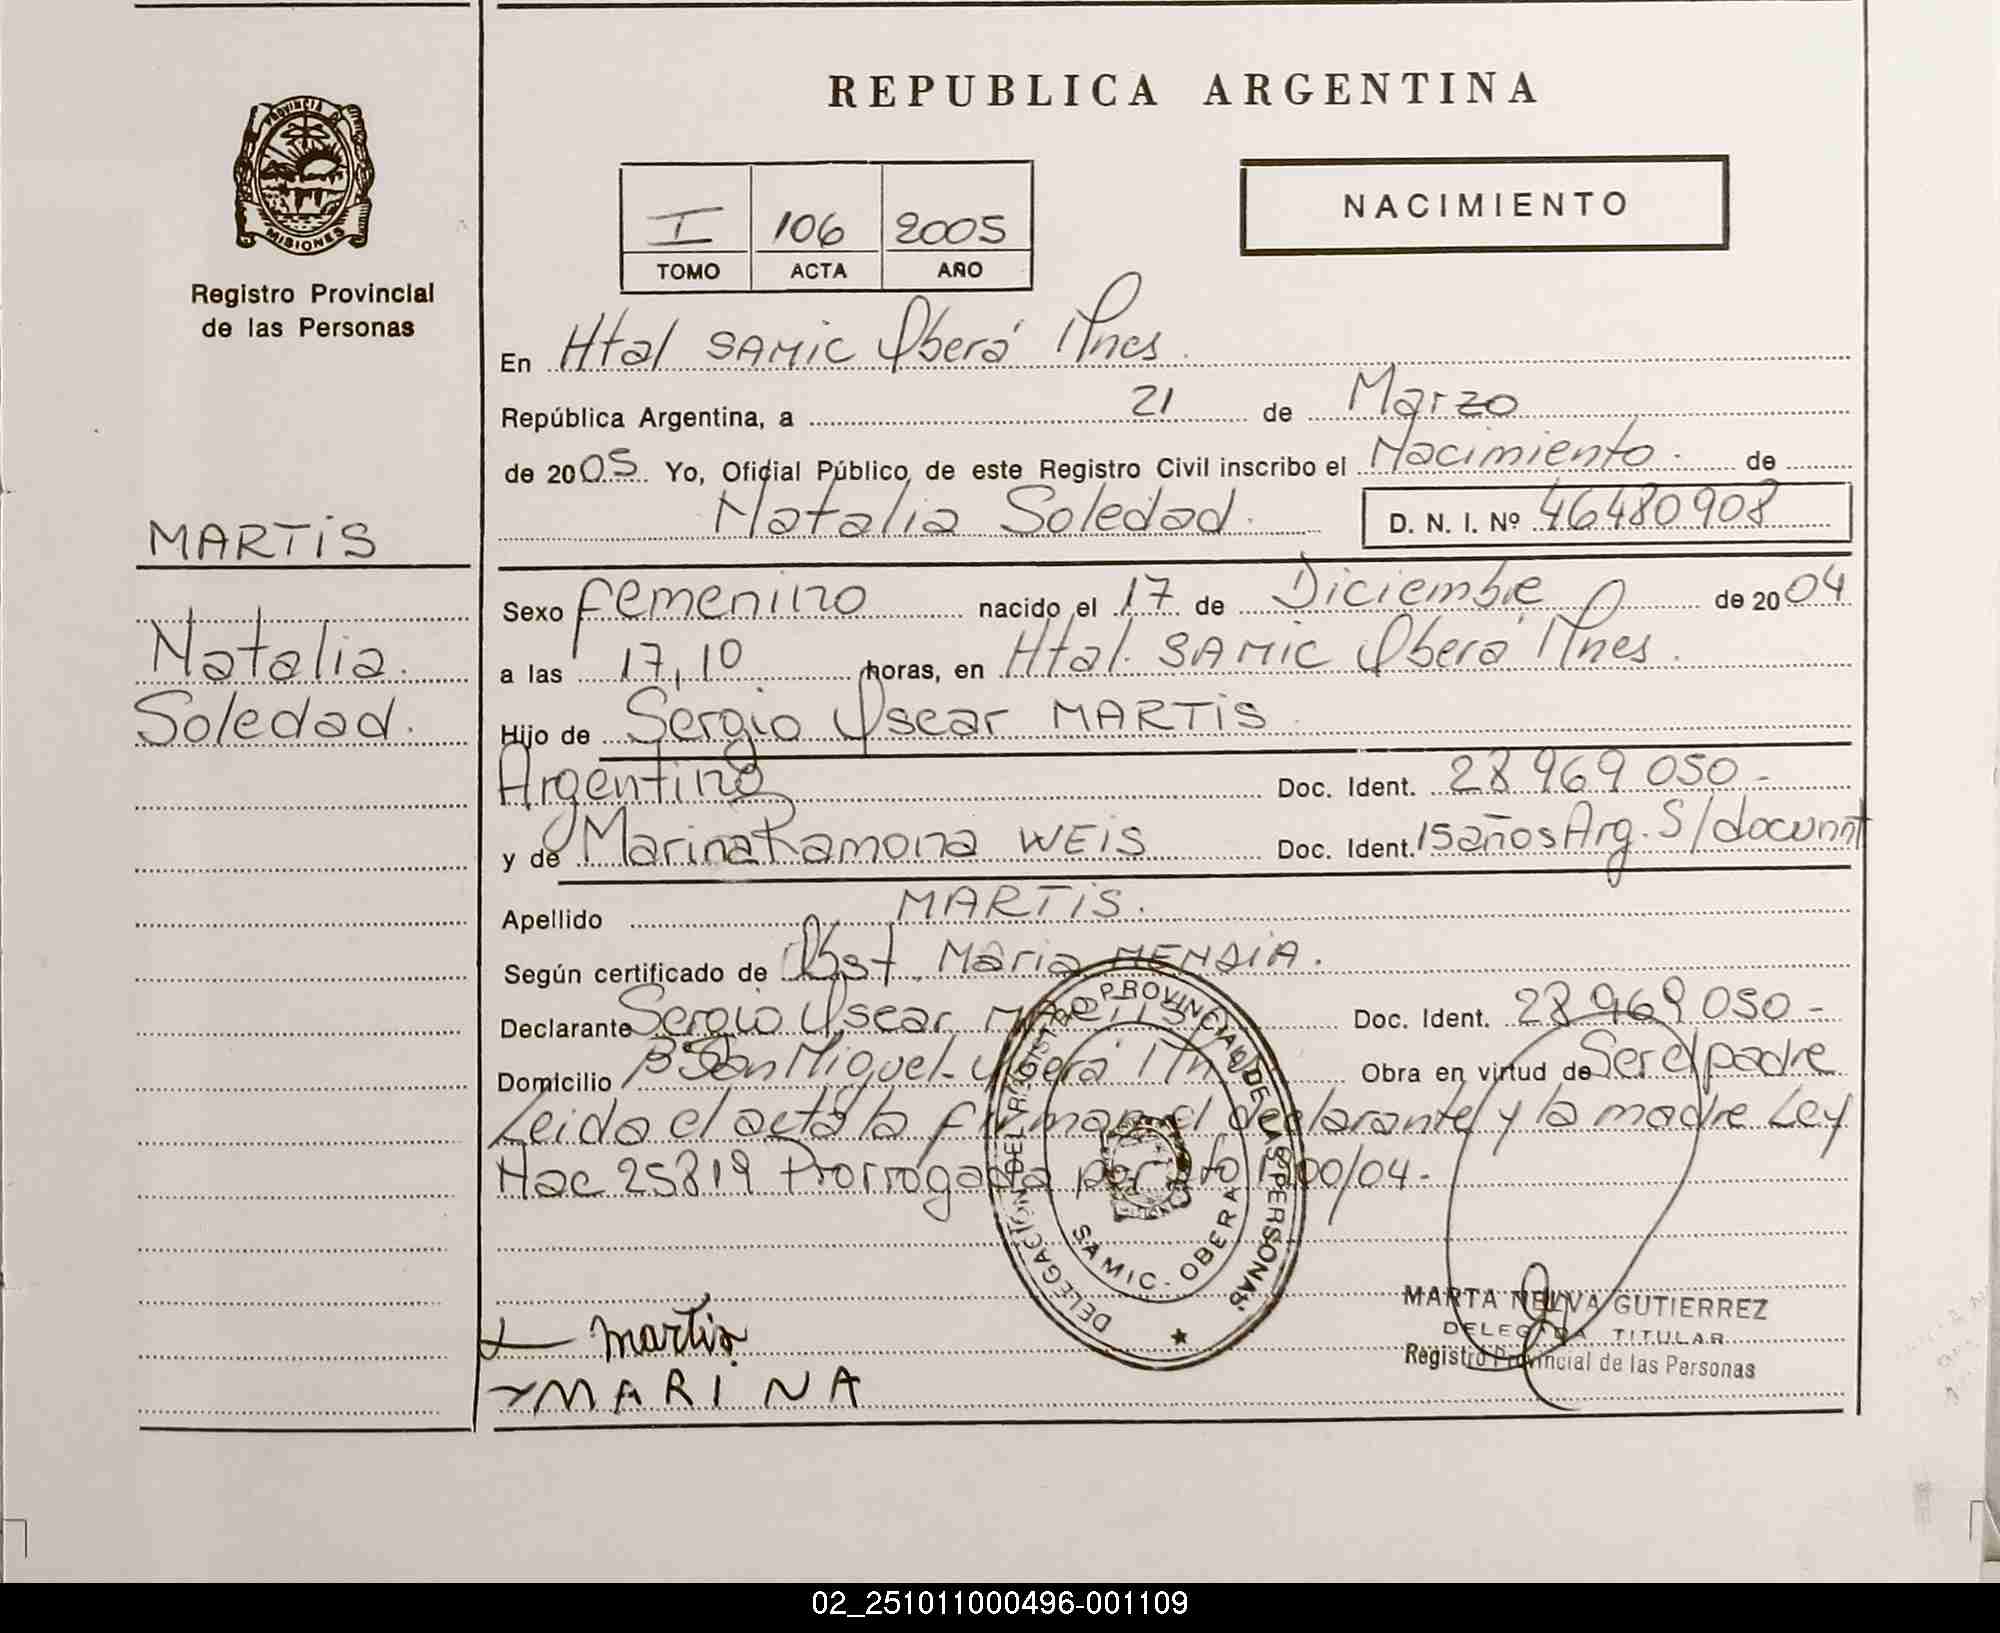 REPUBLICA ARGENTINA
PROVINCIA DE
MISIONES
Registro Provincial
de las Personas
NACIMIENTO
I 106 2005
TOMO ACTA AÑO
En Htal SAMIC Oberá Mnes.
República Argentina, a 21 de Marzo
de 2005. Yo, Oficial Público de este Registro Civil inscribo el Nacimiento. de
Natalia Soledad. D. N. I. Nº 46480908
MARTiS
Natalia.
Soledad.
Sexo femenino nacido el 17 de Diciembre de 2004
a las 17,10 horas, en Htal. SAMIC Oberá Mnes.
Hijo de Sergio Oscar MARTiS
Argentino Doc. Ident. 28 969 050-
y de Marina Ramona WEiS Doc. Ident. 15 años Arg. S/docunt
Apellido MARTiS.
Según certificado de Obst. Maria MENDiA.
Declarante Sergio Oscar MARTiS Doc. Ident. 28 969 050-
Domicilio Bº San Miguel-Oberá Mnes Obra en virtud de Ser el padre
Leida el acta la firman el declarante y la madre Ley
Nac 25819 Prorrogada por 1200/04-
DELEGACION DEL REGISTRO PROVINCIAL DE LAS PERSONAS
SAMIC - OBERA
Martis
MARINA
MARTA NELVA GUTIERREZ
DELEGADA TITULAR
Registro Provincial de las Personas
02_251011000496-001109